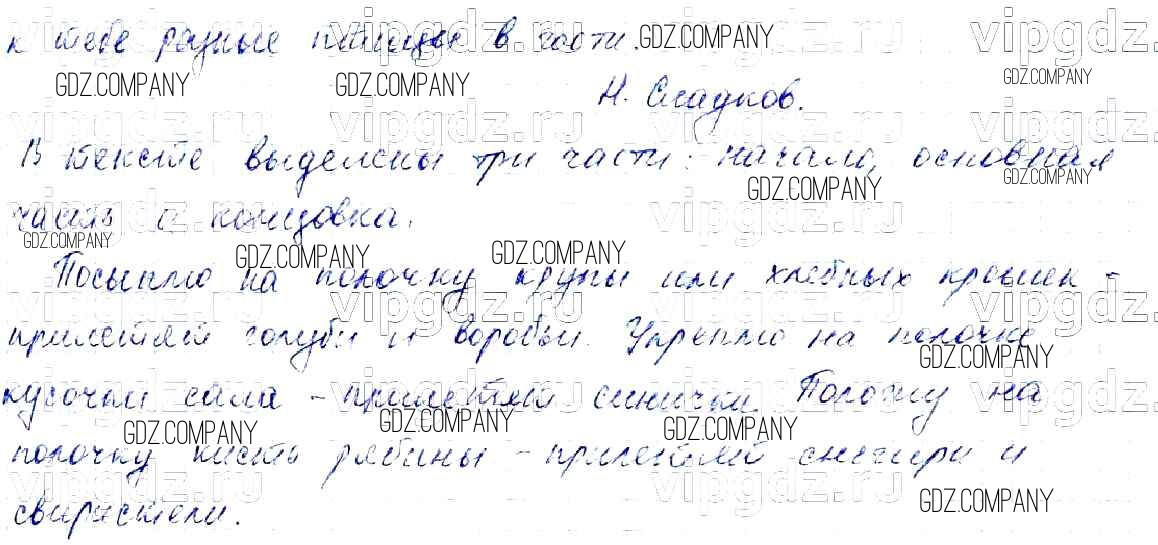 к тебе разные птицы в гости.
Н. Сладков.
В тексте выделены три части: начало, основная
часть и концовка.
Посыплю на полочку крупы или хлебных крошек -
прилетят голуби и воробьи. Укреплю на полочке
кусочки сала - прилетят синички. Положу на
полочку кисть рябины - прилетят снегири и
свиристели.